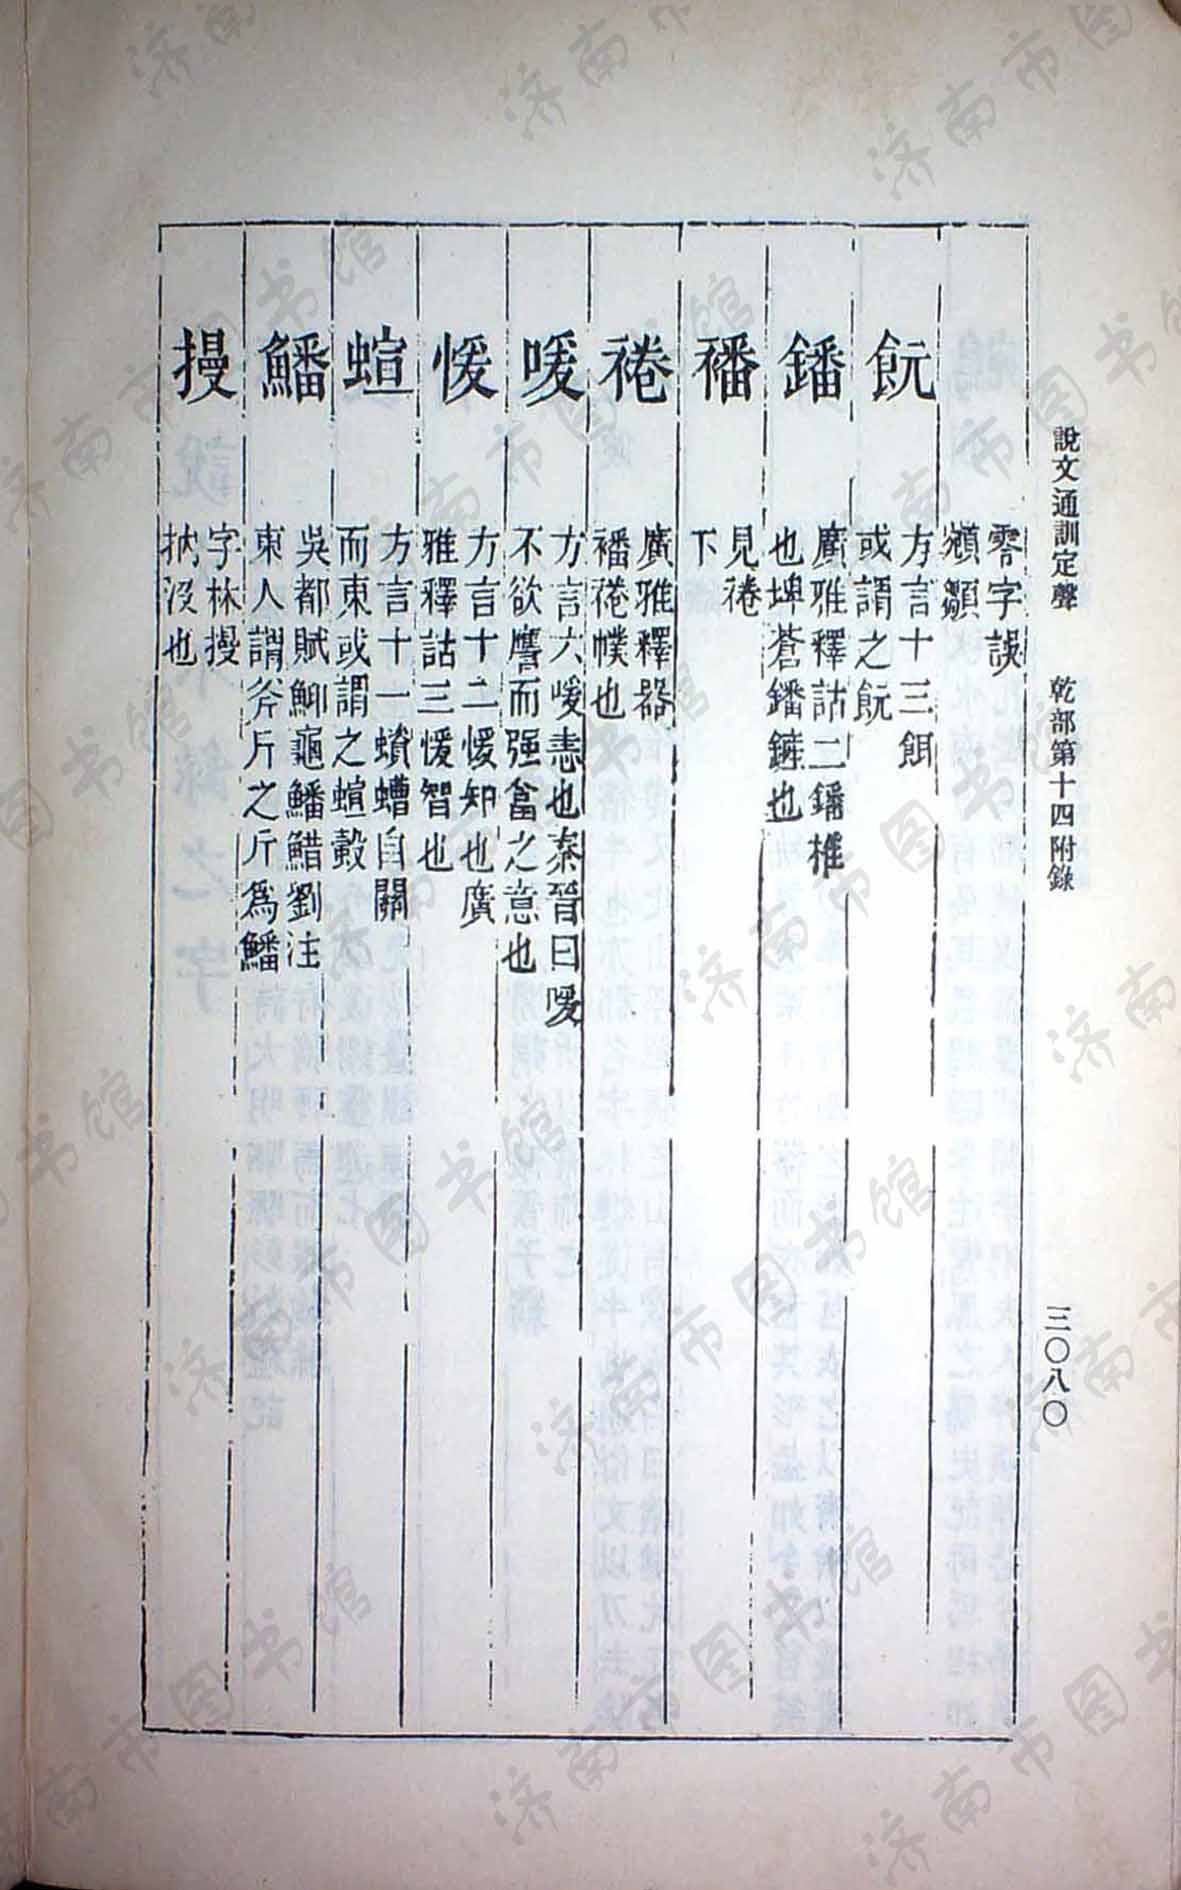 說文通訓定聲　乾部第十四附錄　三〇八〇
零字誤
顲顬
飥　方言十三餌
或謂之飥
鐇　廣雅釋詁二鐇椎
也埤蒼鐇鏟也
襎　見裷
下
裷　廣雅釋器
襎裷幞也
喛　方言六喛恚也秦晉曰喛
不欲譍而强畣之意也
愋　方言十二愋知也廣
雅釋詁三愋智也
蝖　方言十一蠀螬自關
而東或謂之蝖轂
鱕　吳都賦鮣龜鱕䱜劉注
東人謂斧斤之斤爲鱕
㨺　字林㨺
抐没也
济南市图书馆